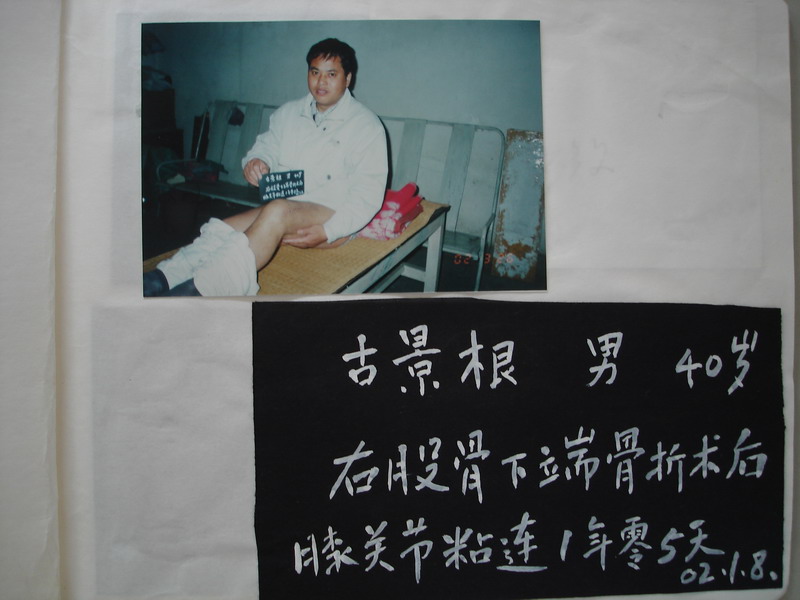 古景根 男 40岁
右股骨下端骨折术后
膝关节粘连1年零5天
02.1.8.